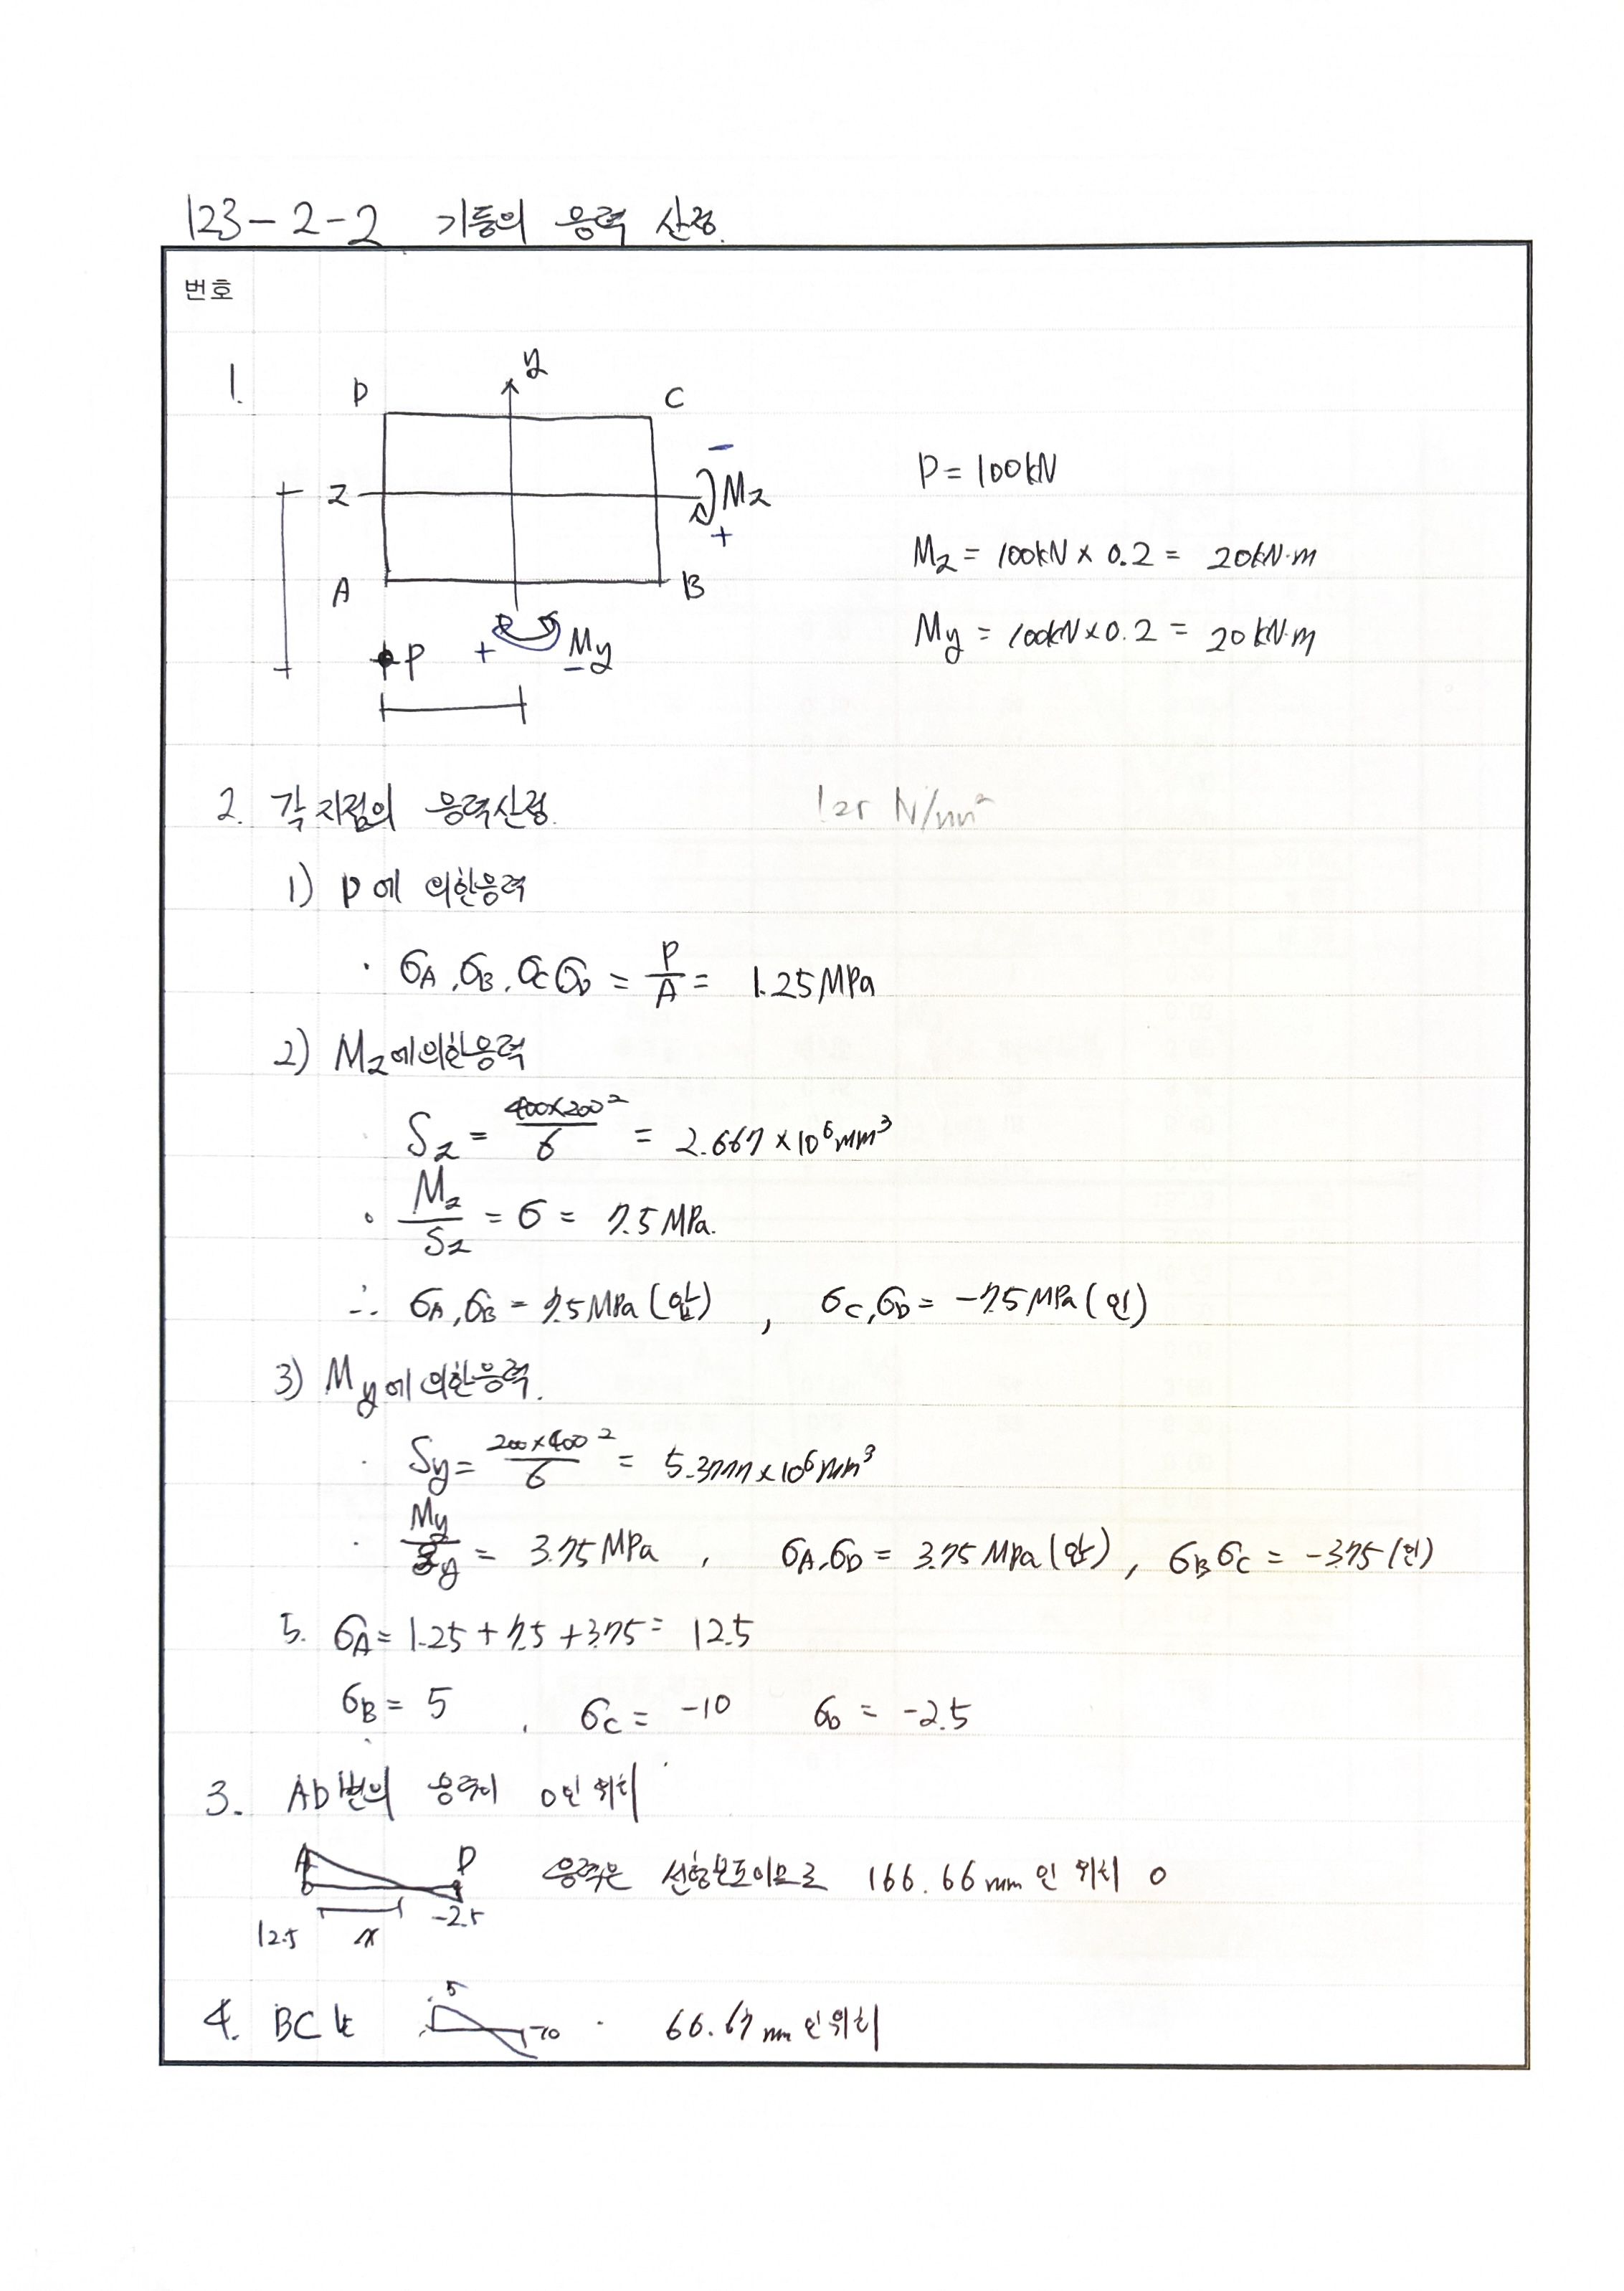 123-2-2 기둥의 응력 산정.
번호
1.
y
D
C
-
z
Mz
+
A
B
P
+
My
-
P = 100kN
Mz = 100kN × 0.2 = 20kN·m
My = 100kN×0.2 = 20kN·m
2. 각 지점의 응력산정.
125 N/mm²
1) P에 의한응력
· σA, σB, σC σD = P/A = 1.25MPa
2) Mz에의한응력
Sz = 400×200²/6 = 2.667 × 10⁶mm³
· Mz/Sz = σ = 7.5MPa.
∴ σA, σB = 7.5MPa (압) , σC, σD = -7.5MPa (인)
3) My에의한응력.
· Sy = 200×400²/6 = 5.3777×10⁶mm³
· My/Sy = 3.75MPa , σA, σD = 3.75MPa (압) , σB σC = -3.75 (인)
5. σA = 1.25 + 7.5 + 3.75 = 12.5
σB = 5 , σC = -10 σD = -2.5
3. AD변의 응력이 0인 위치
A
D
12.5
x
-2.5
응력은 선형분포이므로 166.66mm 인 위치 0
4. BC는
5
-10
· 66.67mm 인위치